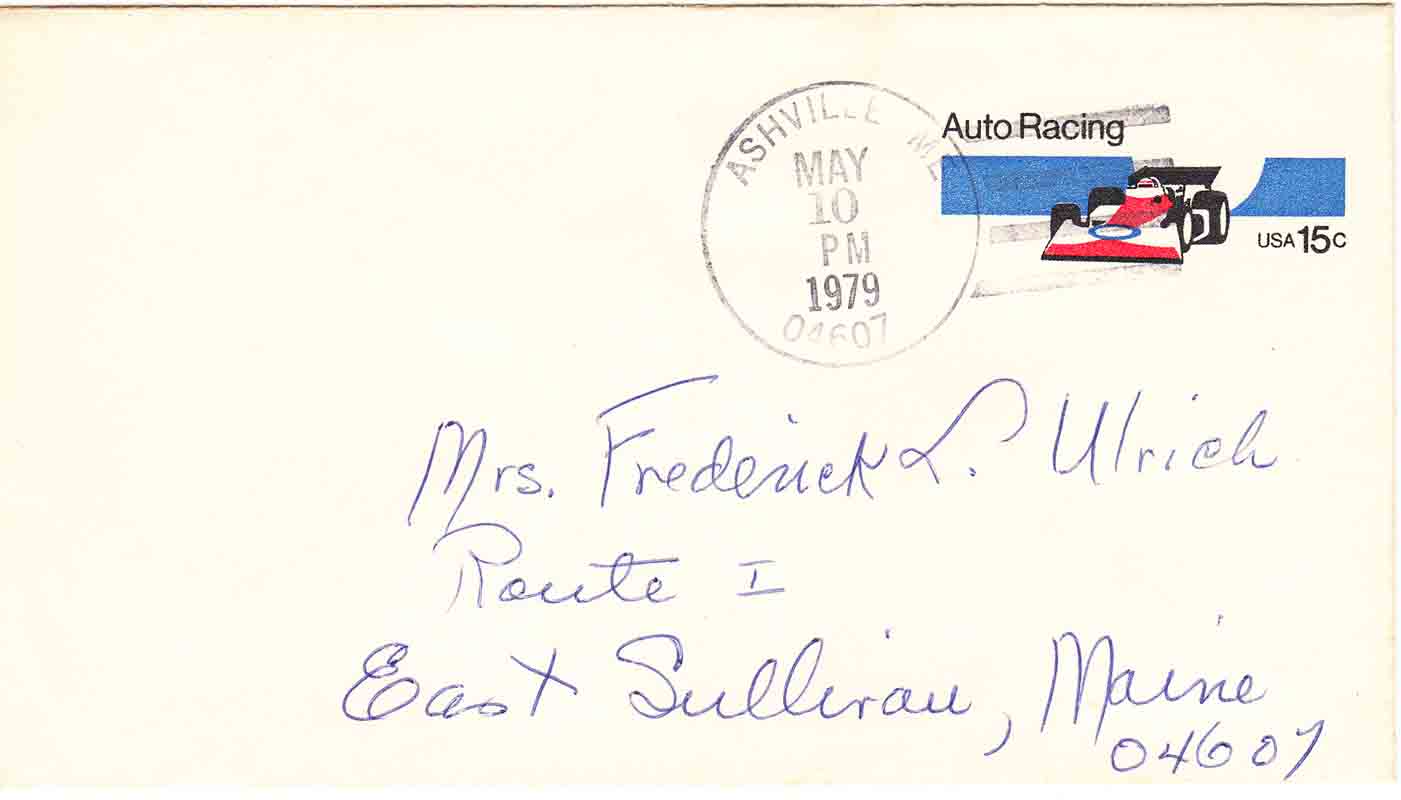 ASHVILLE ME
MAY
10
PM
1979
04607
Auto Racing
USA 15c
Mrs. Frederick L. Ulrich
Route I
East Sullivan, Maine
04607